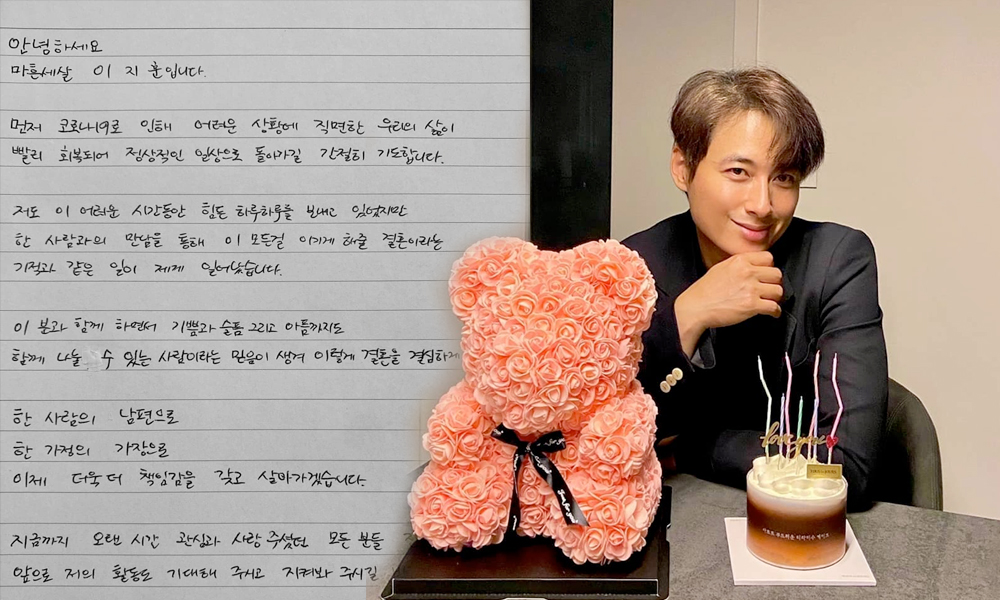 안녕하세요
마흔세살 이 지 훈입니다.
먼저 코로나19로 인해 어려운 상황에 직면한 우리의 삶이
빨리 회복되어 정상적인 일상으로 돌아가길 간절히 기도합니다.
저도 이 어려운 시간동안 힘든 하루하루를 보내고 있었지만
한 사람과의 만남을 통해 이 모든걸 이기게 해줄 결혼이라는
기적과 같은 일이 제게 일어났습니다.
이 분과 함께 하면서 기쁨과 슬픔 그리고 아픔까지도
함께 나눌 수 있는 사람이라는 믿음이 생겨 이렇게 결혼을 결심하게
한 사람의 남편으로
한 가정의 가장으로
이제 더욱 더 책임감을 갖고 살아가겠습니다.
지금까지 오랜 시간 관심과 사랑 주셨던 모든 분들
앞으로 저의 활동도 기대해 주시고 지켜봐 주시길
love you